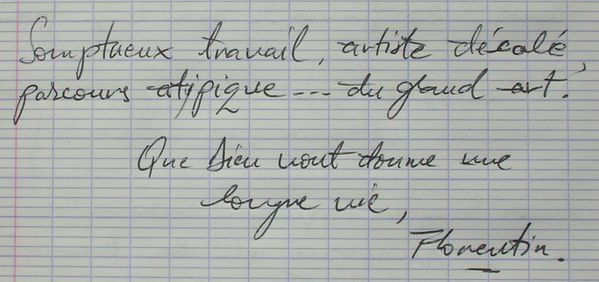 Somptueux travail, artiste décalé,
parcours atypique --- du grand art.
Que Dieu vous donne une
longue vie,
Florentin.